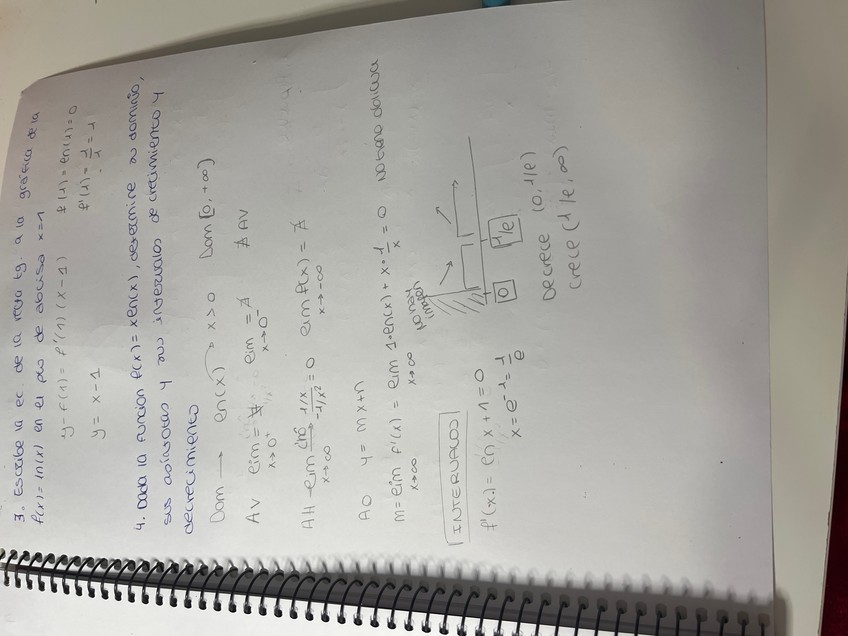 3. Escribe la ec. de la recta tg. a la gráfica de la
f(x) = ln(x) en el pto de abcisa x=1
y - f(1) = f'(1) (x-1) f(1) = ln(1) = 0
y = x-1 f'(1) = 1/1 = 1
4. Dada la función f(x) = x ln(x), determine su dominio,
sus asíntotas y sus intervalos de crecimiento y
decrecimiento
Dom → ln(x) → x>0 Dom [0, +∞)
AV lim x→0⁺ = ∄ lim x→0⁻ = ∄ ∄ AV
AH - lim x→∞ 1/x / -1/x² = 0 lim x→-∞ f(x) = ∄
AO y = mx+n
m = lim x→∞ f'(x) = lim x→∞ 1·ln(x) + x·1/x = 0 No tiene oblicua
INTERVALOS
No hay
imagen
f'(x) = ln x + 1 = 0
x = e⁻¹ = 1/e
0 1/e
Decrece (0, 1/e)
Crece (1/e, ∞)